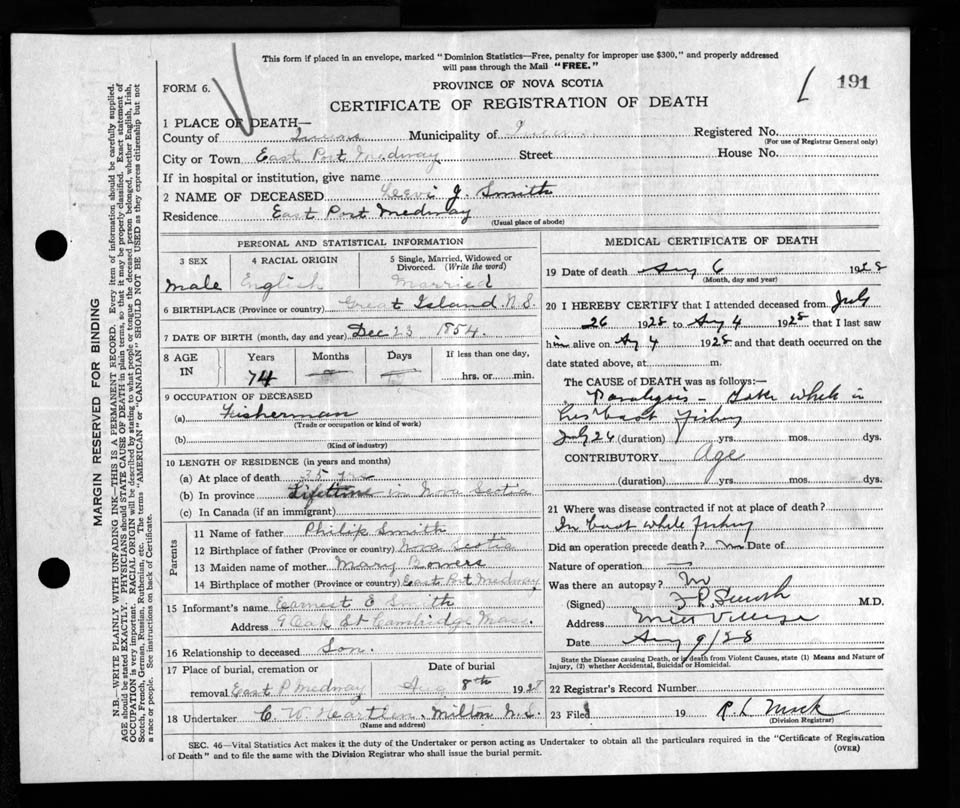 This form if placed in an envelope, marked "Dominion Statistics—Free, penalty for improper use $300," and properly addressed
will pass through the Mail "FREE."
191
FORM 6.
PROVINCE OF NOVA SCOTIA
CERTIFICATE OF REGISTRATION OF DEATH
1 PLACE OF DEATH—
County of Queens Municipality of Queens Registered No.
(For use of Registrar General only)
City or Town East Port Medway Street House No.
If in hospital or institution, give name
2 NAME OF DECEASED Leevi J. Smith
Residence East Port Medway
(Usual place of abode)
PERSONAL AND STATISTICAL INFORMATION
3 SEX 4 RACIAL ORIGIN 5 Single, Married, Widowed or Divorced. (Write the word)
Male English Married
6 BIRTHPLACE (Province or country) Great Island N.S.
7 DATE OF BIRTH (month, day and year) Dec 23 1854.
8 AGE IN Years Months Days If less than one day,
74 hrs. or min.
9 OCCUPATION OF DECEASED
(a) Fisherman
(Trade or occupation or kind of work)
(b)
(Kind of industry)
10 LENGTH OF RESIDENCE (in years and months)
(a) At place of death 35 yrs
(b) In province Lifetime in Nova Scotia
(c) In Canada (if an immigrant)
Parents
11 Name of father Philip Smith
12 Birthplace of father (Province or country) Nova Scotia
13 Maiden name of mother Mary Bowers
14 Birthplace of mother (Province or country) East Port Medway
15 Informant's name Earnest E Smith
Address 9 Oak St Cambridge Mass.
16 Relationship to deceased Son.
17 Place of burial, cremation or Date of burial
removal East P Medway Aug 8th 1928
18 Undertaker C. W. Heartlen. Milton N.S.
(Name and address)
MEDICAL CERTIFICATE OF DEATH
19 Date of death Aug 6 1928
(Month, day and year)
20 I HEREBY CERTIFY that I attended deceased from July
26 1928 to Aug 4 1928 that I last saw
him alive on Aug 4 1928 and that death occurred on the
date stated above, at m.
The CAUSE OF DEATH was as follows:—
Paralysis – Taken while in
his boat fishing
July 26 (duration) yrs. mos. dys.
CONTRIBUTORY Age
(duration) yrs. mos. dys.
21 Where was disease contracted if not at place of death?
In boat while fishing
Did an operation precede death? no Date of
Nature of operation —
Was there an autopsy? no
(Signed) F. R. Smith M.D.
Address Mill Village
Date Aug 9/28
State the Disease causing Death, or in death from Violent Causes, state (1) Means and Nature of
Injury, (2) whether Accidental, Suicidal or Homicidal.
22 Registrar's Record Number
23 Filed 19 R. L. Mack
(Division Registrar)
SEC. 46—Vital Statistics Act makes it the duty of the Undertaker or person acting as Undertaker to obtain all the particulars required in the "Certificate of Registration
of Death" and to file the same with the Division Registrar who shall issue the burial permit. (OVER)
MARGIN RESERVED FOR BINDING
N.B.—WRITE PLAINLY WITH UNFADING INK—THIS IS A PERMANENT RECORD. Every item of information should be carefully supplied.
AGE should be stated EXACTLY. PHYSICIANS should STATE CAUSE OF DEATH in plain terms, so that it may be properly classified. Exact statement of
OCCUPATION is very important. RACIAL ORIGIN will be described by stating to what people or tongue the deceased person belonged, whether English, Irish,
Scotch, French, German, Russian, Ruthenian, etc. The terms "AMERICAN" or "CANADIAN" SHOULD NOT BE USED as they express citizenship but not
a race or people. See instructions on back of Certificate.